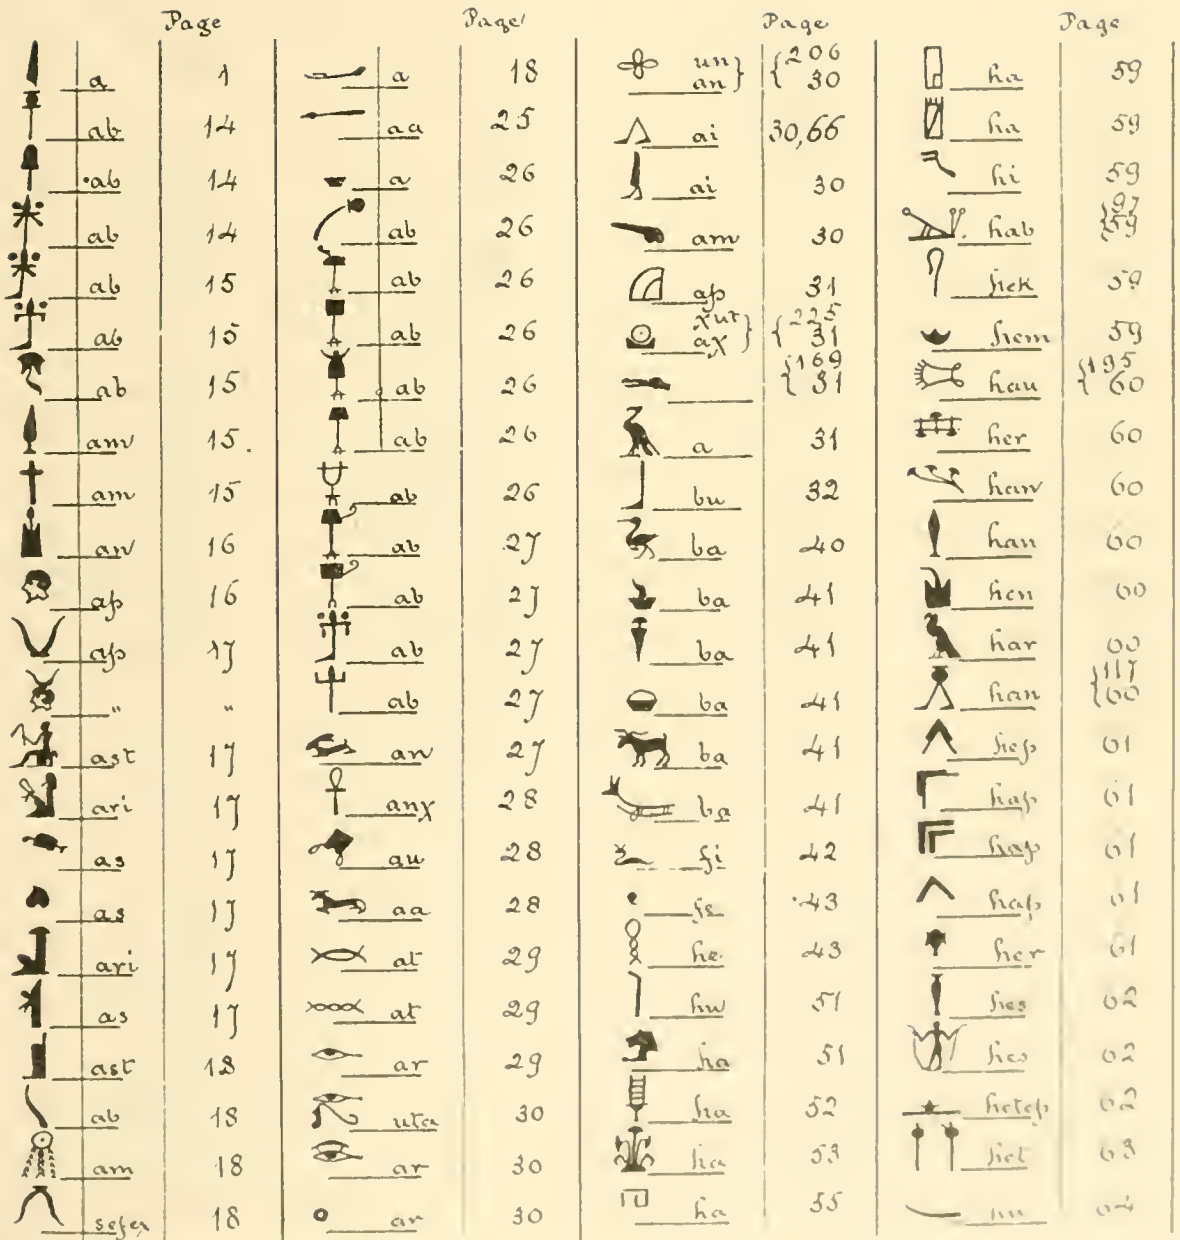 Page
a 1
ab 14
ab 14
ab 14
ab 15
ab 15
ab 15
am 15
am 15
an 16
ap 16
ap 17
" "
ast 17
ari 17
as 17
as 17
ari 17
as 17
ast 18
ab 18
am 18
sefer 18
Page
a 18
aa 25
a 26
ab 26
ab 26
ab 26
ab 26
ab 26
ab 26
ab 27
ab 27
ab 27
ab 27
an 27
anχ 28
au 28
aa 28
at 29
at 29
ar 29
uta 30
ar 30
ar 30
Page
un } { 206
an } { 30
ai 30,66
ai 30
am 30
ap 31
χut } { 225
aχ } { 31
{ 169
{ 31
a 31
bu 32
ba 40
ba 41
ba 41
ba 41
ba 41
ba 41
fi 42
fe 43
he 43
hu 51
ha 51
ha 52
ha 53
ha 55
Page
ha 59
ha 59
hi 59
hab { 97
{ 59
hek 59
hem 59
hau { 195
{ 60
her 60
han 60
han 60
hen 60
har 60
han { 117
{ 60
hep 61
hap 61
hap 61
hap 61
her 61
hes 62
hes 62
hetep 62
het 63